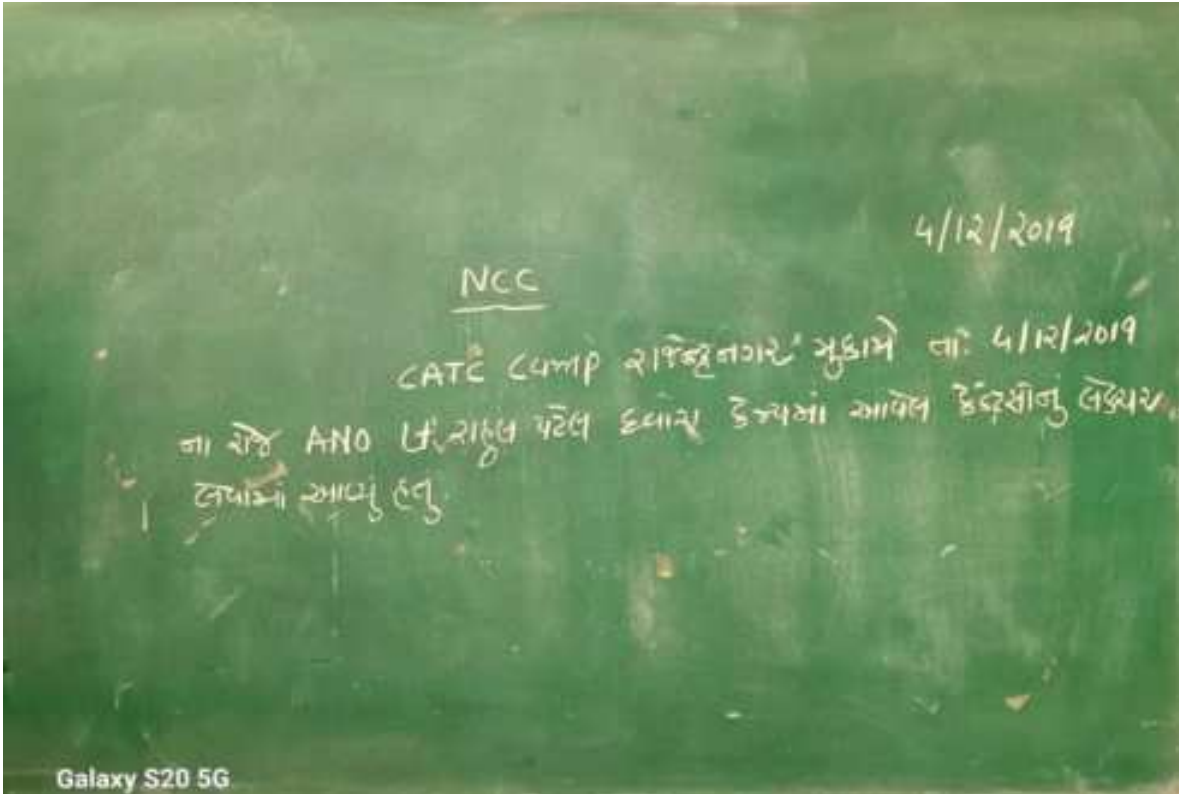 ૫/૧૨/૨૦૧૯
NCC
CATC Camp રાજેન્દ્રનગર મુકામે તા: ૫/૧૨/૨૦૧૯
ના રોજ ANO Lt. રાહુલ પટેલ દ્વારા કેમ્પમાં આવેલ કેડેટ્સીનું લેક્ચર
લેવામાં આવ્યું હતું.
Galaxy S20 5G